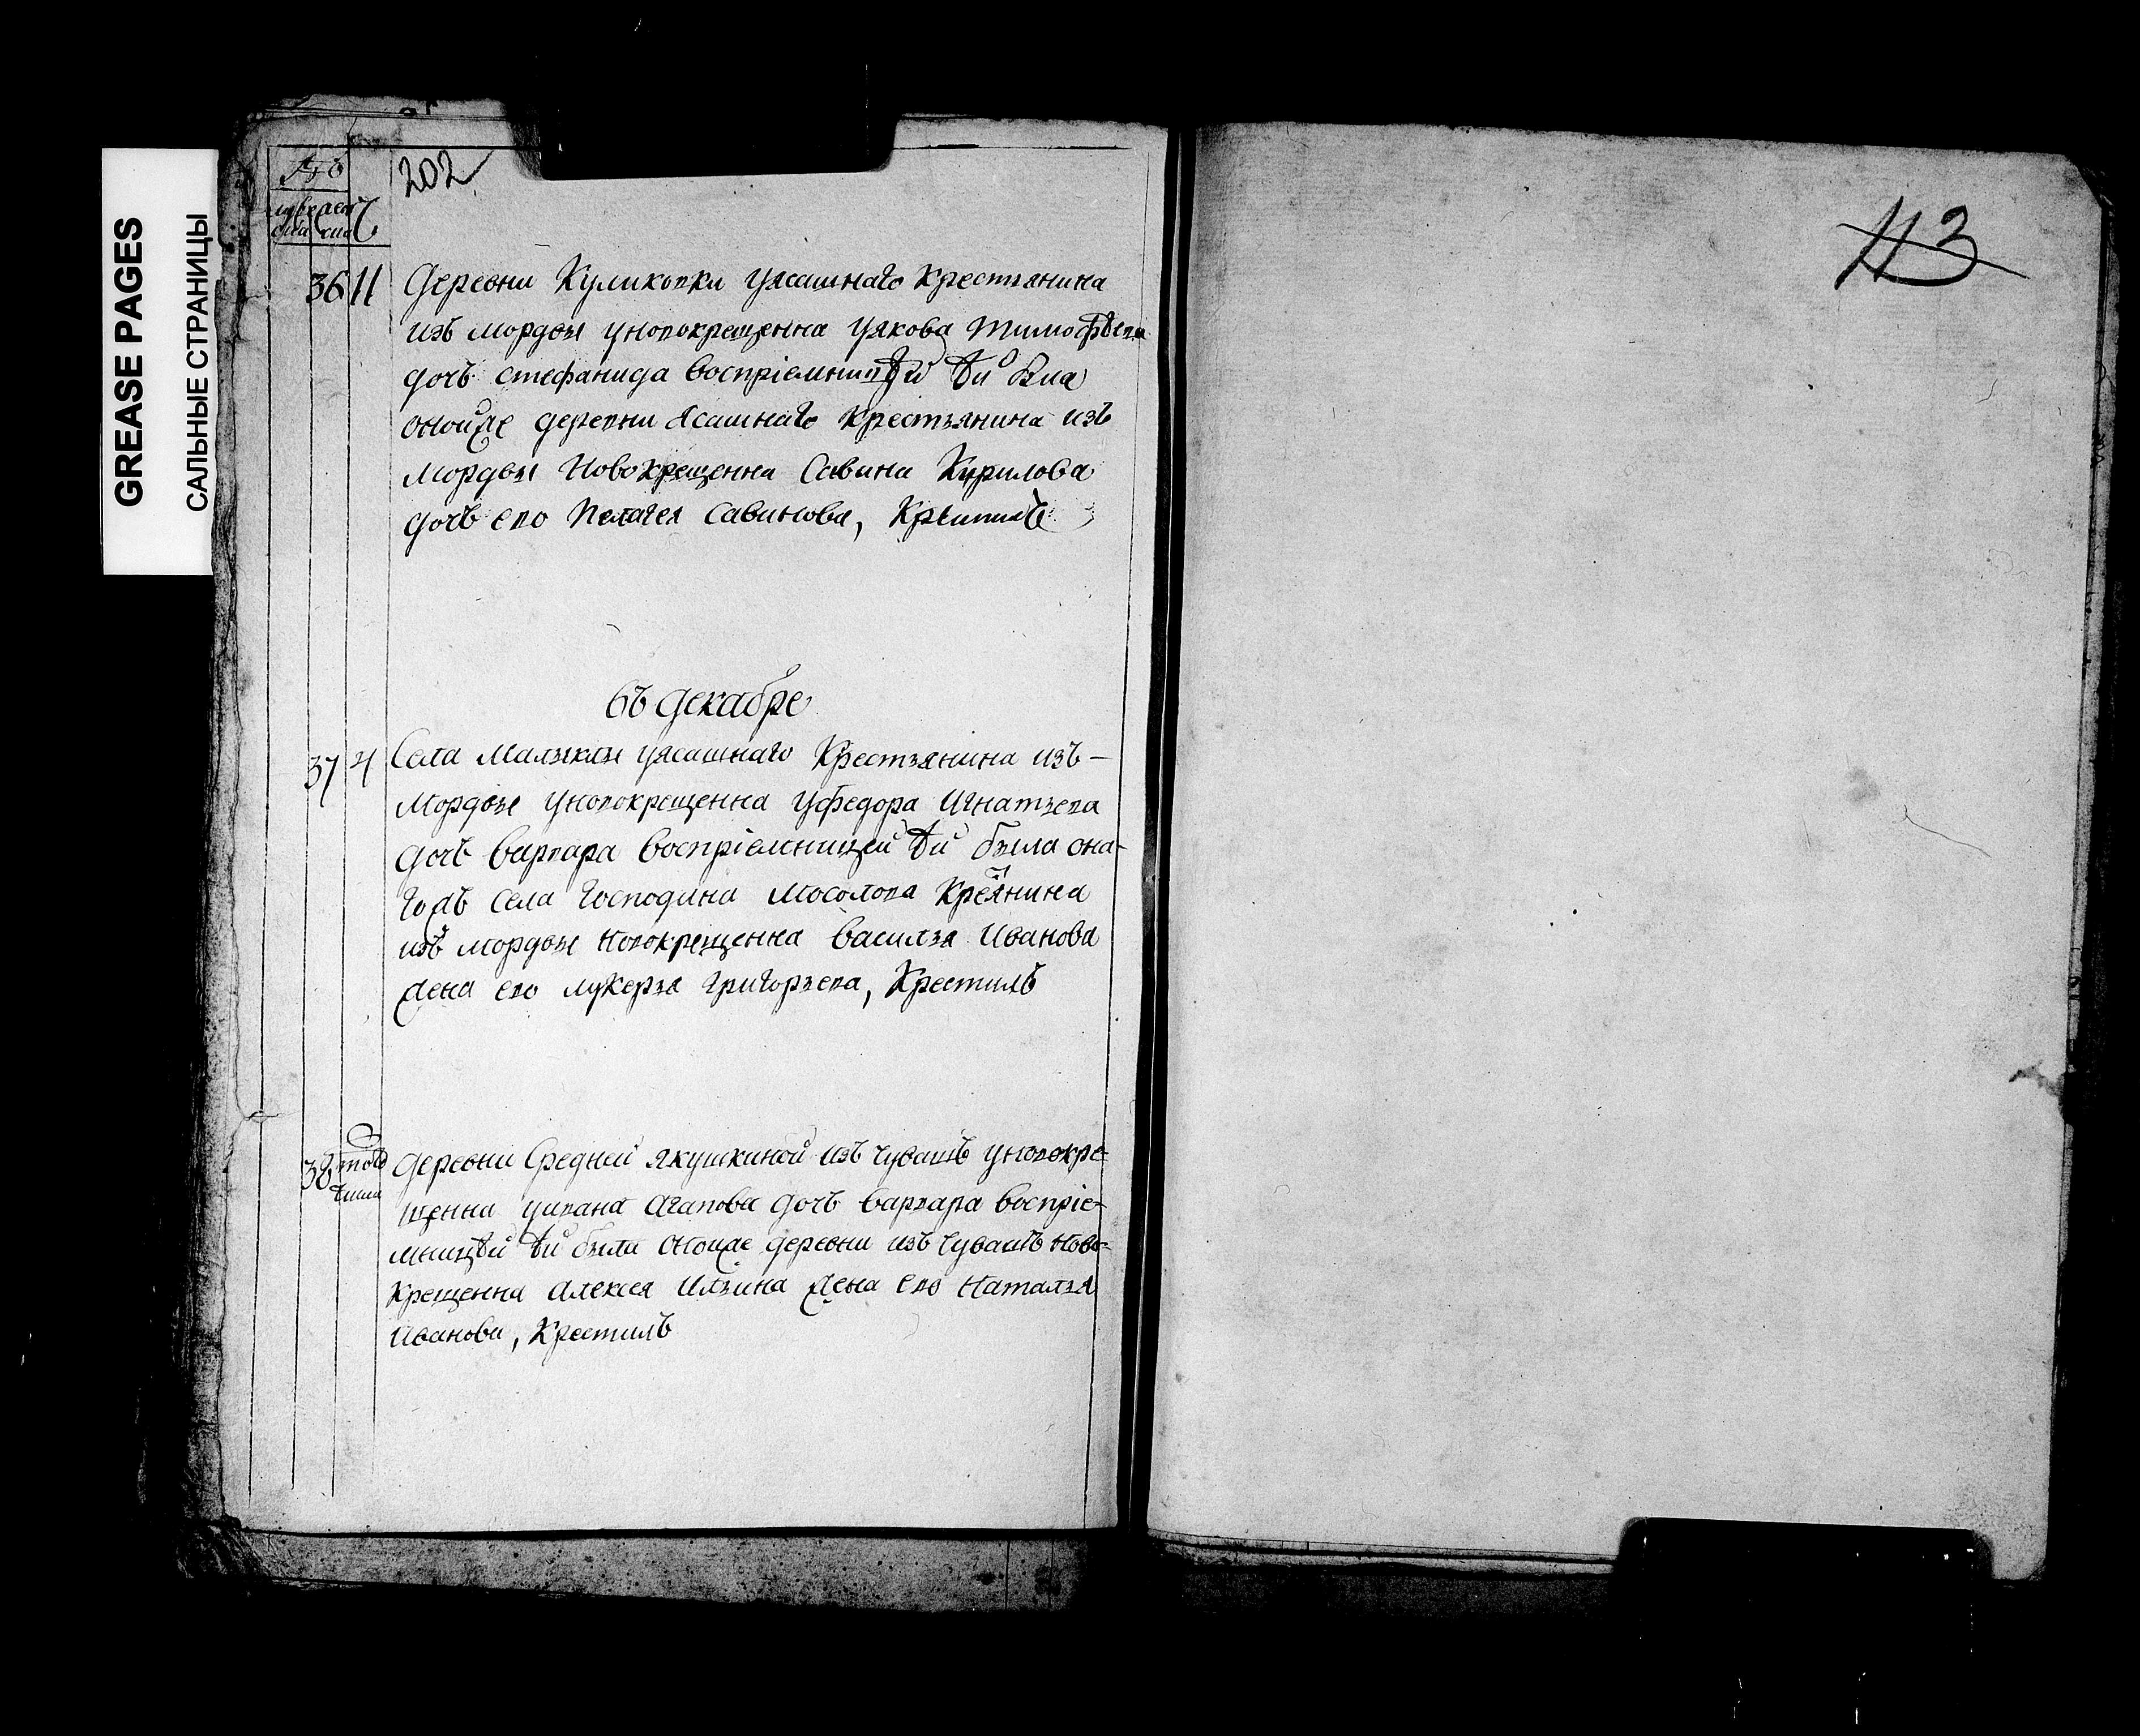 GREASE PAGES
САЛЬНЫЕ СТРАНИЦЫ
202
113
36 11 Деревни Куликовки уясашнаго крестьянина
изъ мордвы уновокрещенна уякова тимофѣева
дочь стефанида воспріемницѣй ѣй была
онойже деревни ясашнаго крестьянина изъ
мордвы новокрещенна Савина Кирилова
дочь ево пелагея Савинова, Крѣстилъ
въ декабре
37 4 Села Малыклы уясашнаго Крестьянина изъ
Мордвы уновокрещенна уфедора Игнатьева
дочь варвара воспріемницей ѣй была она-
гожъ села господина Мосолова Кретянина
изъ мордвы новокрещенна василья Иванова
жена ево лукерья григорьева, Крестилъ
38 Деревни Средней якушкиной изъ чувашъ уновокре-
щенна уивана Агапова дочь варвара воспріе-
мницѣй ѣй была оноиже деревни изъ чувашъ ново-
крещенна алексея Ильина жена ево наталья
Иванова, Крестилъ